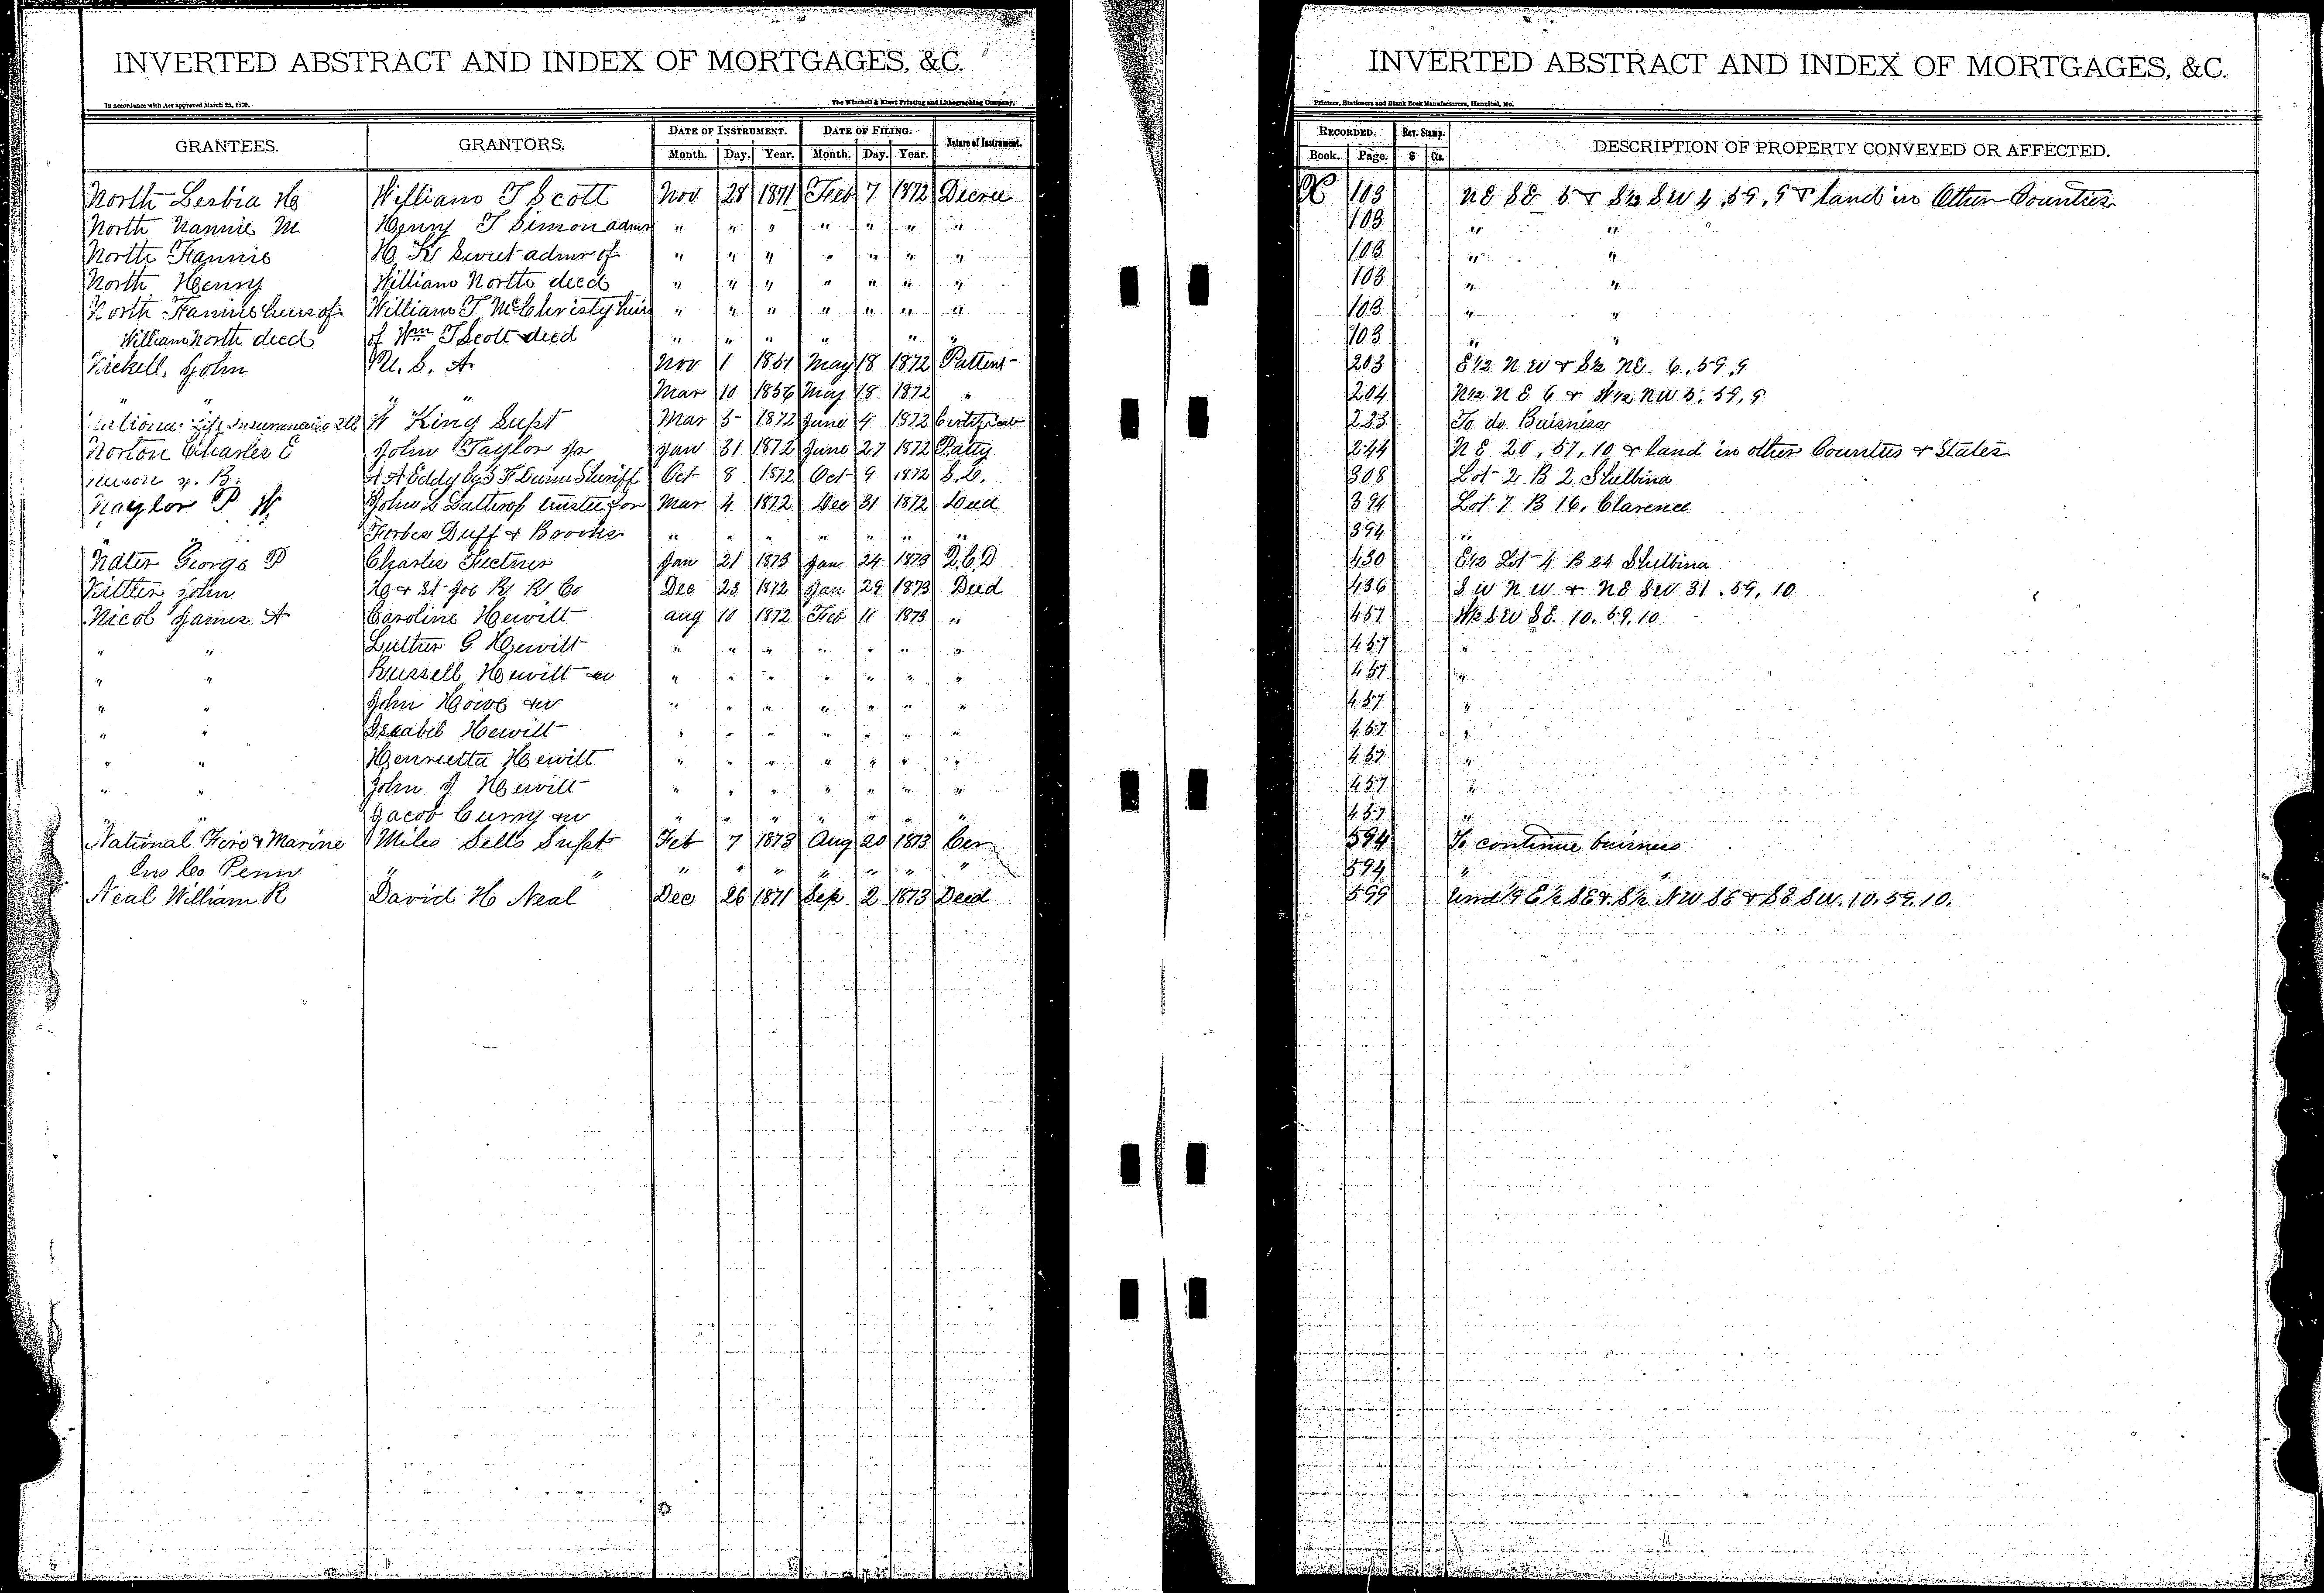 INVERTED ABSTRACT AND INDEX OF MORTGAGES, &C.
In accordance with Act approved March 25, 1870.
The Winchell & Ebert Printing and Lithographing Company,
GRANTEES. GRANTORS. DATE OF INSTRUMENT. DATE OF FILING. Nature of Instrument.
Month. Day. Year. Month. Day. Year.
North Lesbia H William T Scott Nov 28 1871 Feb 7 1872 Decree
North Nannie M Henry T Simon admr " " " " " " "
North Fannie H K Sweet admr of " " " " " " "
North Henry William North decd " " " " " " "
North Fannie heirs of William T McChristy heir " " " " " " "
William North decd of Wm T Scott decd " " " " " " "
Nickell, John U. S. A. Nov 1 1851 May 18 1872 Pattent
" " Mar 10 1856 May 18 1872 "
Life Insurance W King Supt Mar 5 1872 June 4 1872 Certificate
Norton Charles E John Taylor Jr Jan 31 1872 June 27 1872 Patty
A A Eddy by S F Dunn Sheriff Oct 8 1872 Oct 9 1872 S. D.
Naylor P W John L Lathrop trustee for Mar 4 1872 Dec 31 1872 Deed
" " Forbes Duff & Brooks " " " " " " "
Nater George P Charles Fectner Jan 21 1873 Jan 24 1873 Q. C. D
John H & St Joe R R Co Dec 23 1872 Jan 29 1873 Deed
Nicol James A Caroline Hewitt Aug 10 1872 Feb 11 1873 "
" " Luther G Hewitt " " " " " " "
" " Russell Hewitt & w " " " " " " "
" " John Howe & w " " " " " " "
" " Isabel Hewitt " " " " " " "
" " Henrietta Hewitt " " " " " " "
" " John J Hewitt " " " " " " "
" " Jacob Curry & w " " " " " " "
National Fire & Marine Miles Sells Supt Feb 7 1873 Aug 20 1873 Cer
Ins Co Penn " " " " " " " " "
Neal William R David H Neal Dec 26 1871 Sep 2 1873 Deed
INVERTED ABSTRACT AND INDEX OF MORTGAGES, &C.
Printers, Stationers and Blank Book Manufacturers, Hannibal, Mo.
RECORDED. Rev. Stamp. DESCRIPTION OF PROPERTY CONVEYED OR AFFECTED.
Book. Page. $ Cts.
103 NE SE 5 & S½ SW 4, 59, 9 & land in Other Counties
103 " "
103 " "
103 " "
103 " "
103 " "
203 E½ N W & S½ NE. 6, 59, 9
204 N½ N E 6 & N½ NW 5, 59, 9
223 To do Buisniss
244 N E 20, 57, 10 & land in other Counties & States
308 Lot 2 B 2 Shelbina
394 Lot 7 B 16, Clarence
394 "
430 E½ Lot 4 B 24 Shelbina
436 S W N W & NE SW 31, 59, 10
457 W½ SW SE. 10, 59, 10
457 "
457 "
457 "
457 "
457 "
457 "
457 "
594 To continue buisness
594 " "
599 Und 1/9 E½ SE & S½ NW SE & SE SW. 10, 59, 10.